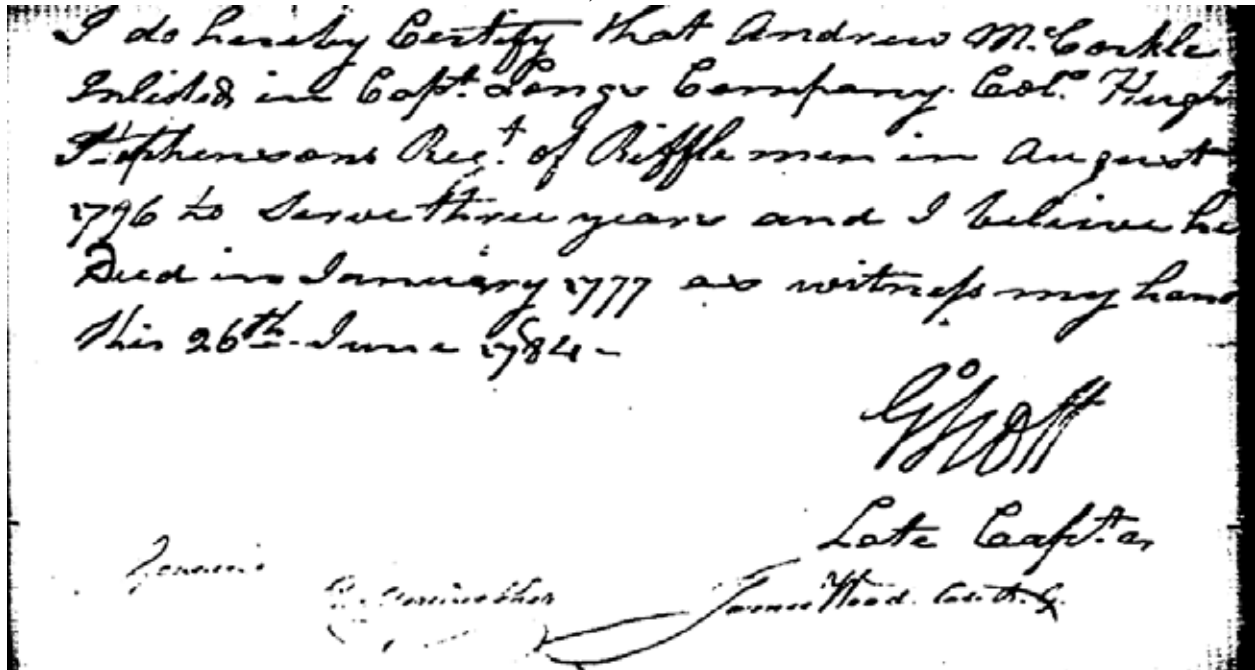 I do hereby Certify that Andrew McCorkle
Inlisted in Capt. Longs Company Col.o Hugh
Stephensons Reg.t of Riffle men in August
1796 to Serve three years and I believe he
Died in January 1777 as witness my hand
this 26th June 1784 -
Late Capt.
James Wood